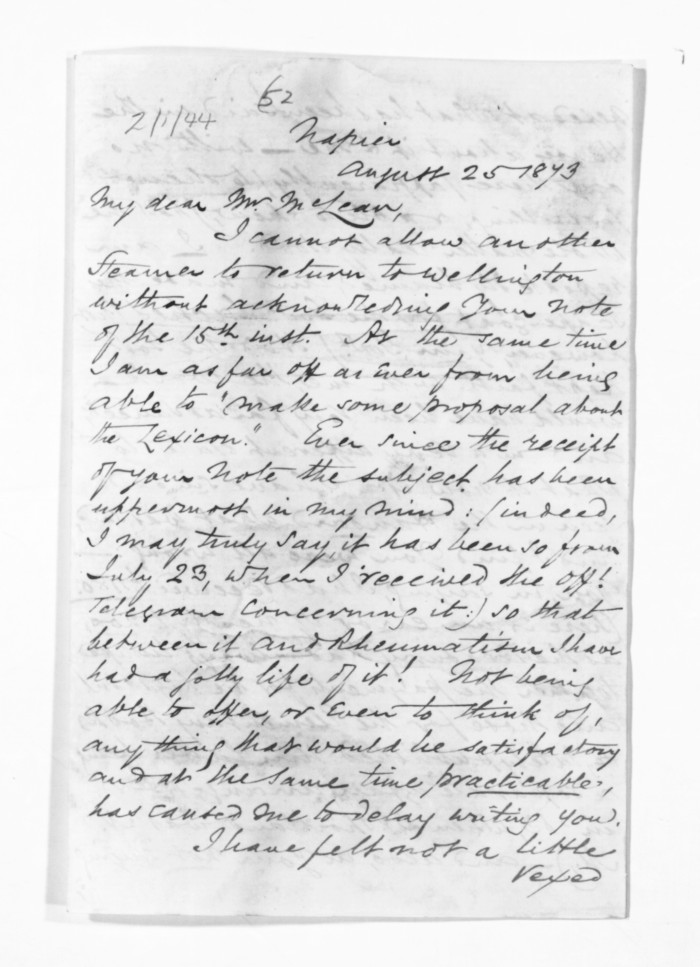 52
2/1/44
Napier
August 25 1873
My dear Mr. McLean,
I cannot allow another
Steamer to return to Wellington
without acknowledging your note
of the 15th inst. At the same time
I am as far off as ever from being
able to "make some proposal about
the Lexicon." Ever since the receipt
of your note the subject has been
uppermost in my mind: (indeed,
I may truly say, it has been so from
July 23, when I received the off!
Telegram concerning it:) so that
between it and Rheumatism I have
had a jolly life of it! Not being
able to offer, or even to think of,
anything that would be satisfactory
and at the same time practicable,
has caused me to delay writing you.
I have felt not a little
vexed